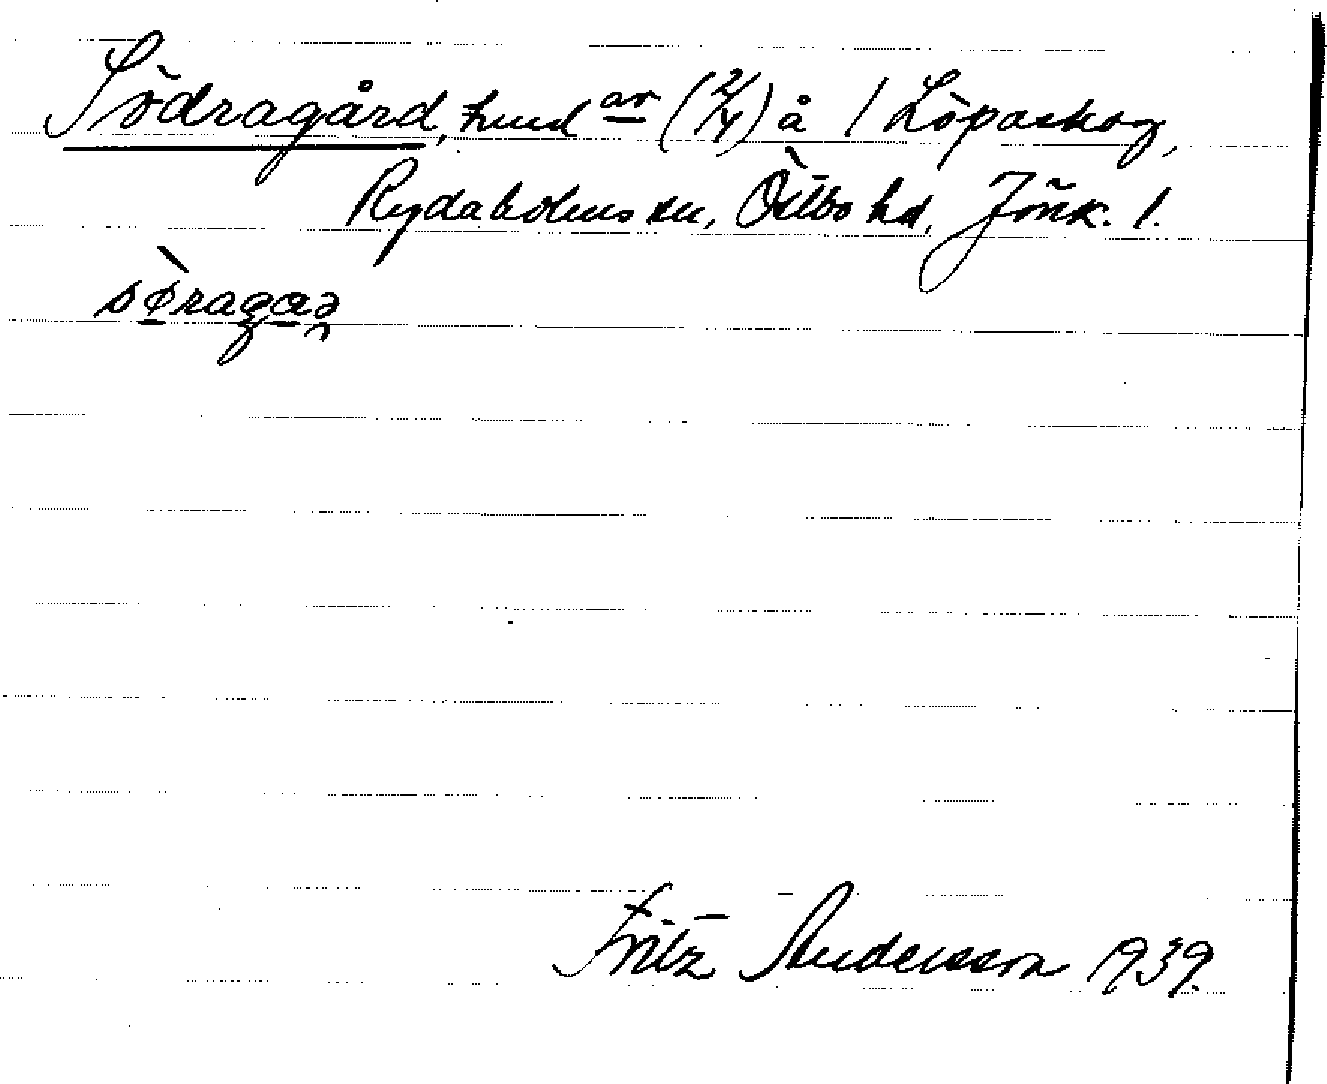 Södragård, hmd av (2/4) å 1 Löpaskog,
Rydaholms sn, Östbo hd, Jönk. l.
Fritz Andersson 1939.